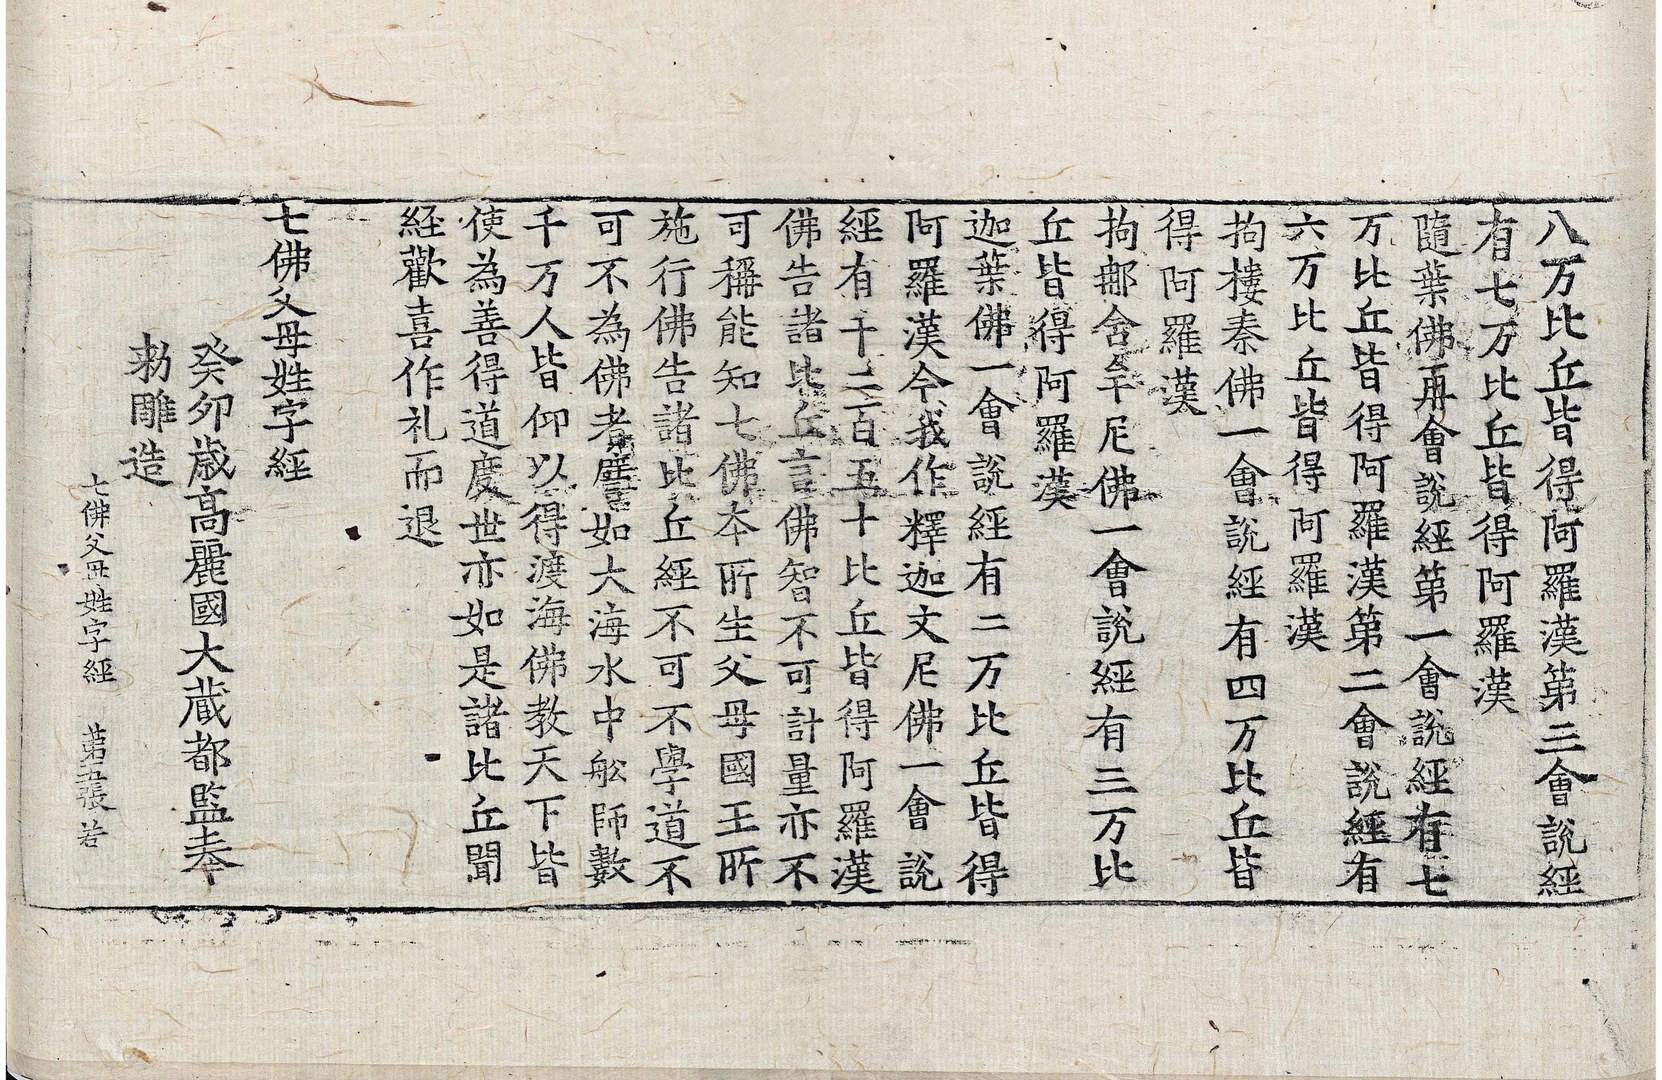 八万比丘皆得阿羅漢第三會說經
有七万比丘皆得阿羅漢
隨葉佛再會說經第一會說經有七
万比丘皆得阿羅漢第二會說經有
六万比丘皆得阿羅漢
拘樓秦佛一會說經有四万比丘皆
得阿羅漢
拘那含牟尼佛一會說經有三万比
丘皆得阿羅漢
迦葉佛一會說經有二万比丘皆得
阿羅漢今我作釋迦文尼佛一會說
經有千二百五十比丘皆得阿羅漢
佛告諸比丘言佛智不可計量亦不
可稱能知七佛本所生父母國王所
施行佛告諸比丘經不可不學道不
可不為佛者譬如大海水中舩師數
千万人皆仰以得渡海佛教天下皆
使為善得道度世亦如是諸比丘聞
経歡喜作礼而退
七佛父母姓字經
癸卯歳高麗國大蔵都監奉
勑雕造
七佛父母姓字經 第五張 若